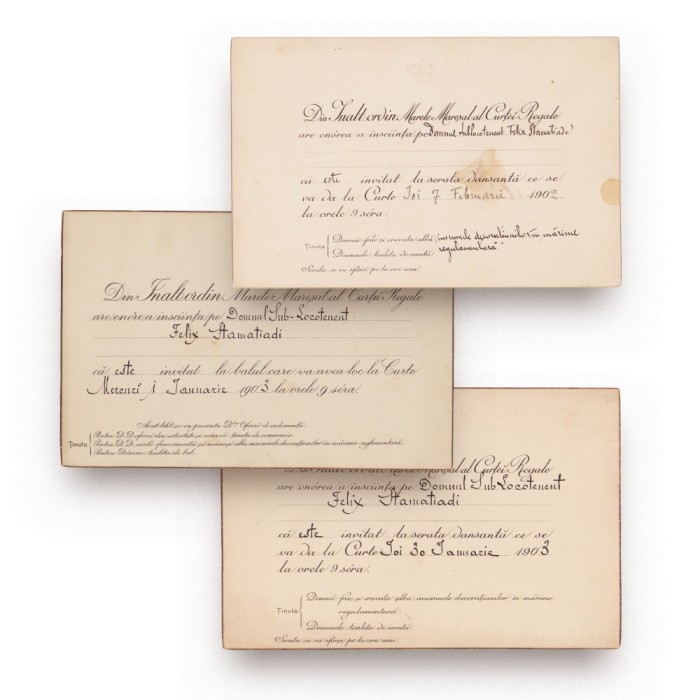 Din Înalt ordin Marele Mareșal al Curței Regale
are onórea a însciința pe Domnul sublocotenent Felix Stamatiade
că este invitat la serata dansantă ce se
va da la Curte Joi 7 Februarie 1902
la orele 9 séra.
Ținuta
Domnii frac și cravata albă, insemnele decorațiunilor în mărime
regulamentară.
Doamnele toaleta de serată
Serata se va sfârși pe la ora una
Din Înalt ordin Marele Mareșal al Curței Regale
are onore a însciința pe Domnul Sub-Locotenent
Felix Stamatiadi
că este invitat la balul care va avea loc la Curte
Mercurĭ 1 Ianuarie 1903 la orele 9 séra.
Acest bilet se va presenta Dlor Oficeri de ordonanță
Ținuta
Pentru D.D. oficeri din activitate și reservă ținuta de ceremonie
Pentru D.D. civili frac, cravată și albă, insemnele decorațiunilor în mărime reglementară.
Pentru Dómne toaleta de bal.
Din Înalt ordin Marele Mareșal al Curței Regale
are onórea a însciința pe Domnul Sub Locotenent
Felix Stamatiadi
că este invitat la serata dansantă ce se
va da la Curte Joi 30 Ianuarie 1903
la orele 9 séra.
Ținuta
Domnii frac și cravata alba, insemnele decorațiunilor in mărime
regulamentară
Doamnele toaleta de serată
Serata se va sfârși pe la ora una